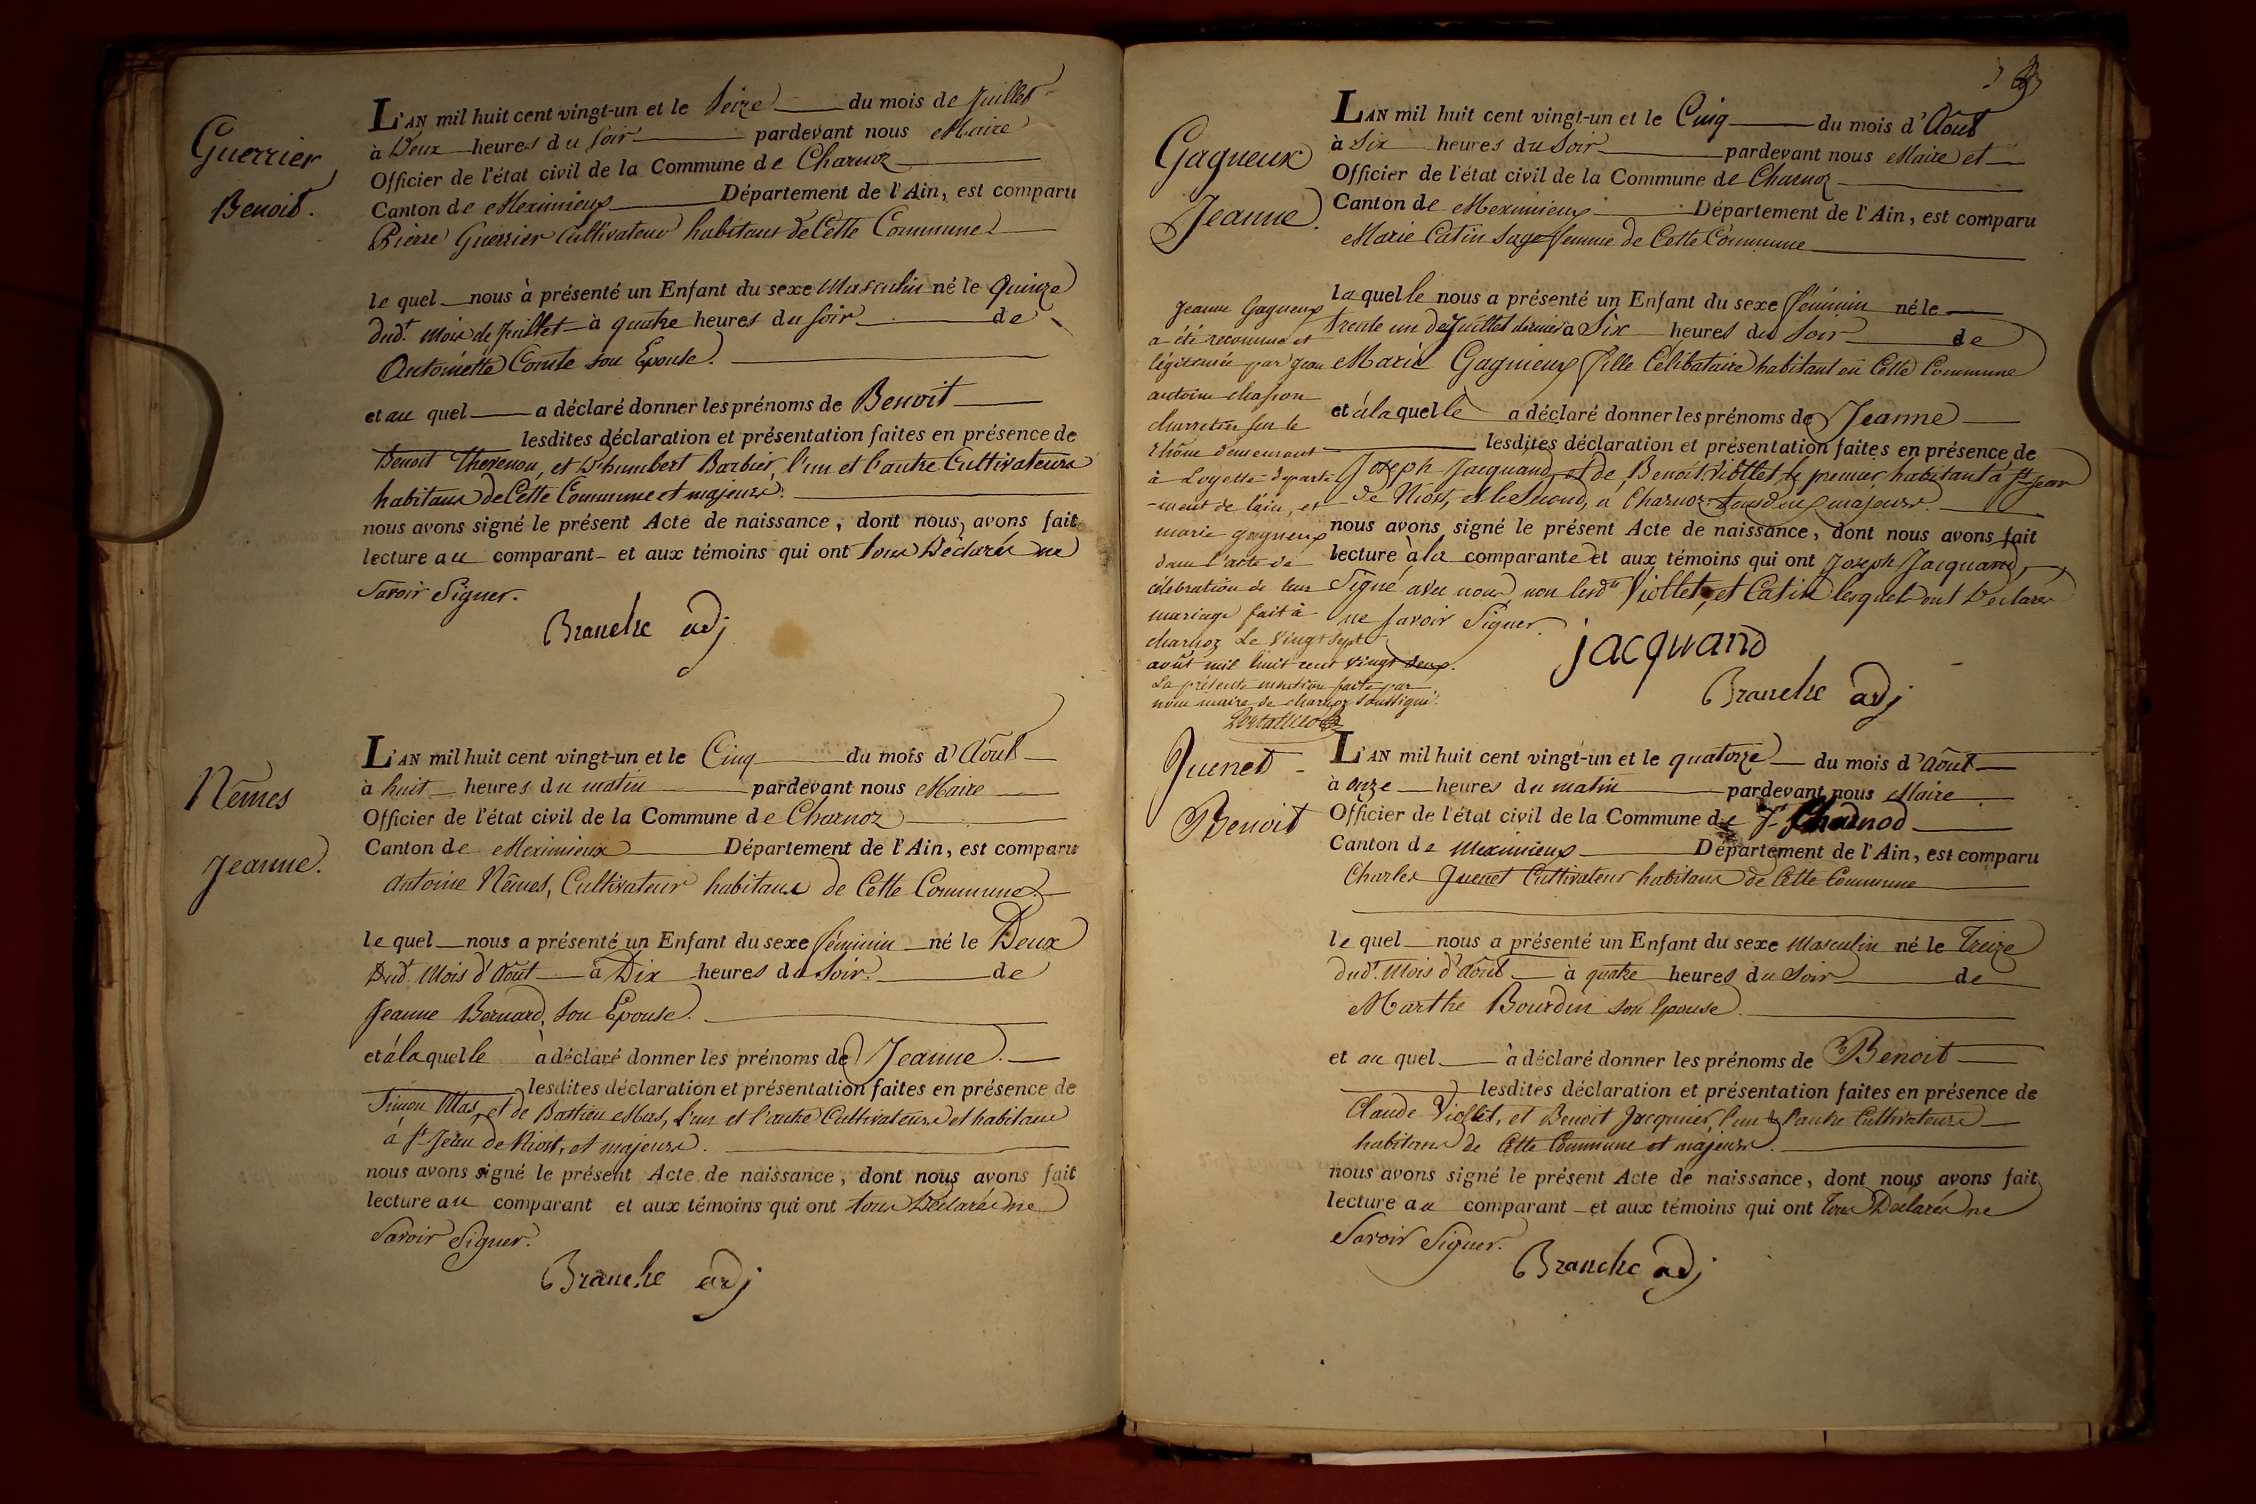 Guerrier
Benoit.
L'AN mil huit cent vingt-un et le Seize du mois de Juillet
à Deux heures du Soir pardevant nous Maire
Officier de l'état civil de la Commune de Charnoz
Canton de Meximieux Département de l'Ain, est comparu
Pierre Guerrier Cultivateur habitant de Cette Commune
le quel nous à présenté un Enfant du sexe Masculin né le Quinze
dud.t mois de Juillet à quatre heures du Soir de
Antoinette Comte son Epouse.
et au quel a déclaré donner les prénoms de Benoit
lesdites déclaration et présentation faites en présence de
Benoit Thevenon, et D'humbert Barbier, l'un et l'autre Cultivateurs
habitans de Cette Commune et majeurs.
nous avons signé le présent Acte de naissance, dont nous avons fait
lecture au comparant et aux témoins qui ont tous Déclarés ne
Savoir Signer.
Branche adj
Nêmes
Jeanne.
L'AN mil huit cent vingt-un et le Cinq du mois d'Août
à huit heures du matin pardevant nous Maire
Officier de l'état civil de la Commune de Charnoz
Canton de Meximieux Département de l'Ain, est comparu
Antoine Nêmes, Cultivateur habitans de Cette Commune
le quel nous a présenté un Enfant du sexe féminin né le Deux
Dud.t Mois d'Août à Dix heures du Soir. de
Jeanne Bernard, son Epouse.
et à la quelle à déclaré donner les prénoms de Jeanne.
lesdites déclaration et présentation faites en présence de
Simon Mas, et de Bastien Mas, l'un et l'autre Cultivateurs et habitans
à St Jean de Niost, et majeurs.
nous avons signé le présent Acte de naissance, dont nous avons fait
lecture au comparant et aux témoins qui ont tous Déclarés ne
Savoir Signer.
Branche adj
Gagneux
Jeanne.
L'AN mil huit cent vingt-un et le Cinq du mois d'Août
à Six heures du Soir pardevant nous Maire et
Officier de l'état civil de la Commune de Charnoz
Canton de Meximieux Département de l'Ain, est comparu
Marie Catin Sage femme de Cette Commune
la quelle nous a présenté un Enfant du sexe féminin né le
trente un de Juillet dernier à Six heures du Soir de
Marie Gagnieux fille Célibataire habitant en Cette Commune
et à la quelle a déclaré donner les prénoms de Jeanne
lesdites déclaration et présentation faites en présence de
Joseph Jacquand, et de Benoit Viollet, le premier habitant à St Jean
de Niost, et le Second, à Charnoz tous deux majeurs.
nous avons signé le présent Acte de naissance, dont nous avons fait
lecture à la comparante et aux témoins qui ont Joseph Jacquand,
Signé avec nous, non lesd.ts Viollet, et Catin lesquels ont Déclarés
ne Savoir Signer.
jacquand
Branche adj
Jeanne Gagneux
a été reconnue et
légitimée par jean
antoine
sur le
rhône
à Loyette départe
-ment de l'ain, et
marie gagneux
dans l'acte de
célébration de leur
mariage fait à
charnoz Le vingt sept
août mil huit cent vingt deux.
La présente mention faite par
nous maire de charnoz soussigné.
Juenet
Benoit
L'AN mil huit cent vingt-un et le quatorze du mois d'Août
à onze heures du matin pardevant nous Maire
Officier de l'état civil de la Commune de Charnod
Canton de Meximieux Département de l'Ain, est comparu
Charles Juenet Cultivateur habitans de Cette Commune
le quel nous a présenté un Enfant du sexe Masculin né le Treize
dud.t Mois d'Août à quatre heures du Soir de
Marthe Bourdin son Epouse.
et au quel à déclaré donner les prénoms de Benoit
lesdites déclaration et présentation faites en présence de
Claude Viollet, et Benoit Jacquier, l'un & l'autre Cultivateurs
habitans de Cette Commune et majeurs.
nous avons signé le présent Acte de naissance, dont nous avons fait
lecture au comparant et aux témoins qui ont tous Déclarés ne
Savoir Signer.
Branche adj